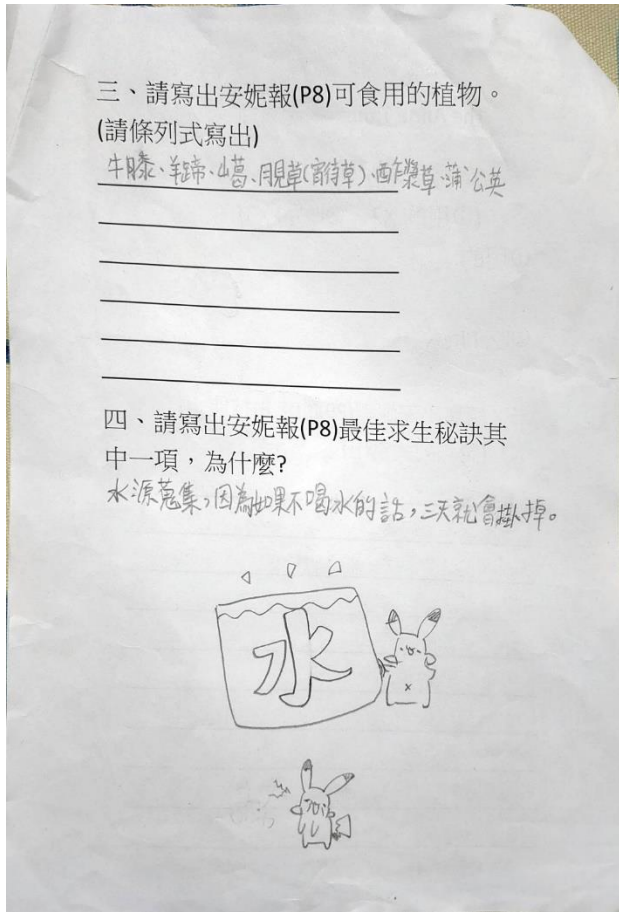 三、請寫出安妮報(P8)可食用的植物。
(請條列式寫出)
牛膝、羊蹄、山葛、月見草(宵待草)、酢漿草、蒲公英
四、請寫出安妮報(P8)最佳求生秘訣其
中一項，為什麼?
水源蒐集，因為如果不喝水的話，三天就會掛掉。
水